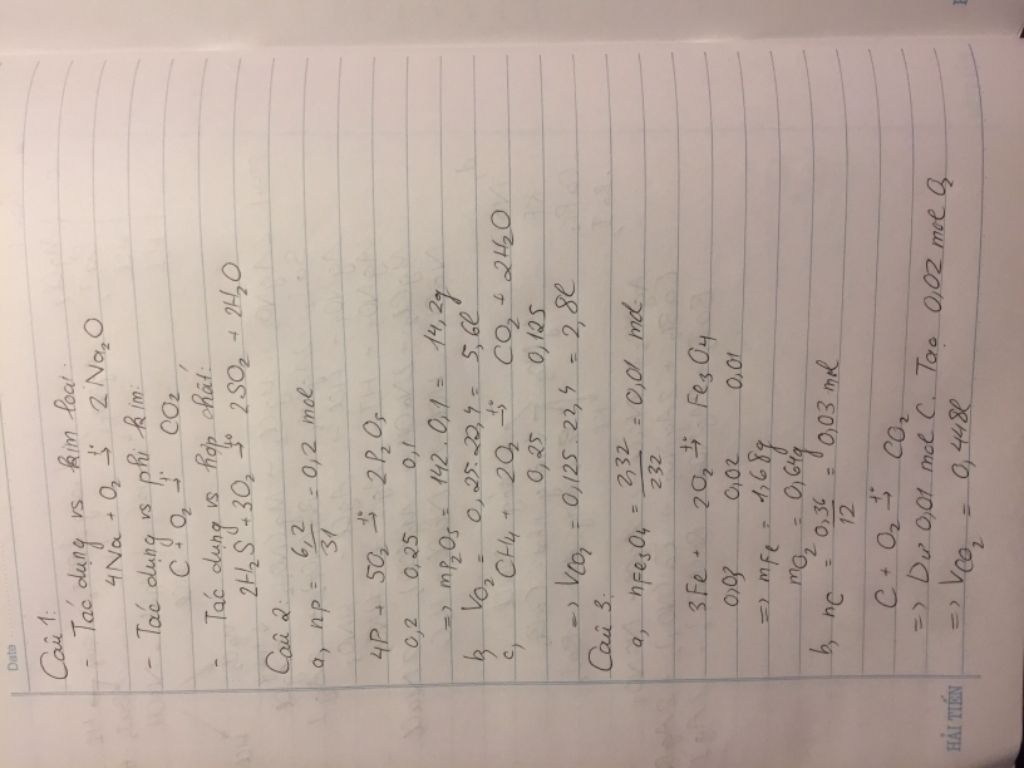 Date
Câu 1:
- Tác dụng vs kim loại:
4Na + O₂ →t° 2Na₂O
- Tác dụng vs phi kim:
C + O₂ →t° CO₂
- Tác dụng vs hợp chất:
2H₂S + 3O₂ →t° 2SO₂ + 2H₂O
Câu 2:
a, nP = 6,2/31 = 0,2 mol
4P + 5O₂ →t° 2P₂O₅
0,2 0,25 0,1
=> mP₂O₅ = 142.0,1 = 14,2g
b, VO₂ = 0,25.22,4 = 5,6l
c, CH₄ + 2O₂ →t° CO₂ + 2H₂O
0,25 0,125
=> VCO₂ = 0,125.22,4 = 2,8l
Câu 3:
a, nFe₃O₄ = 2,32/232 = 0,01 mol
3Fe + 2O₂ →t° Fe₃O₄
0,03 0,02 0,01
=> mFe = 1,68g
mO₂ = 0,64g
b, nC = 0,36/12 = 0,03 mol
C + O₂ →t° CO₂
=> Dư 0,01 mol C. Tạo 0,02 mol O₂
=> VCO₂ = 0,448l
HẢI TIẾN